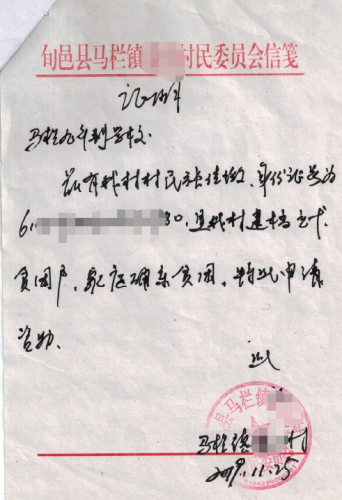 旬邑县马栏镇 村民委员会信笺
证明
马栏九年制学校:
兹有我村村民 佳 ,身份证号为
61 30,是我村建档立卡
贫困户,家庭确系贫困。特此申请
资助。
此
马栏镇 村
2019.11.25
县马栏镇